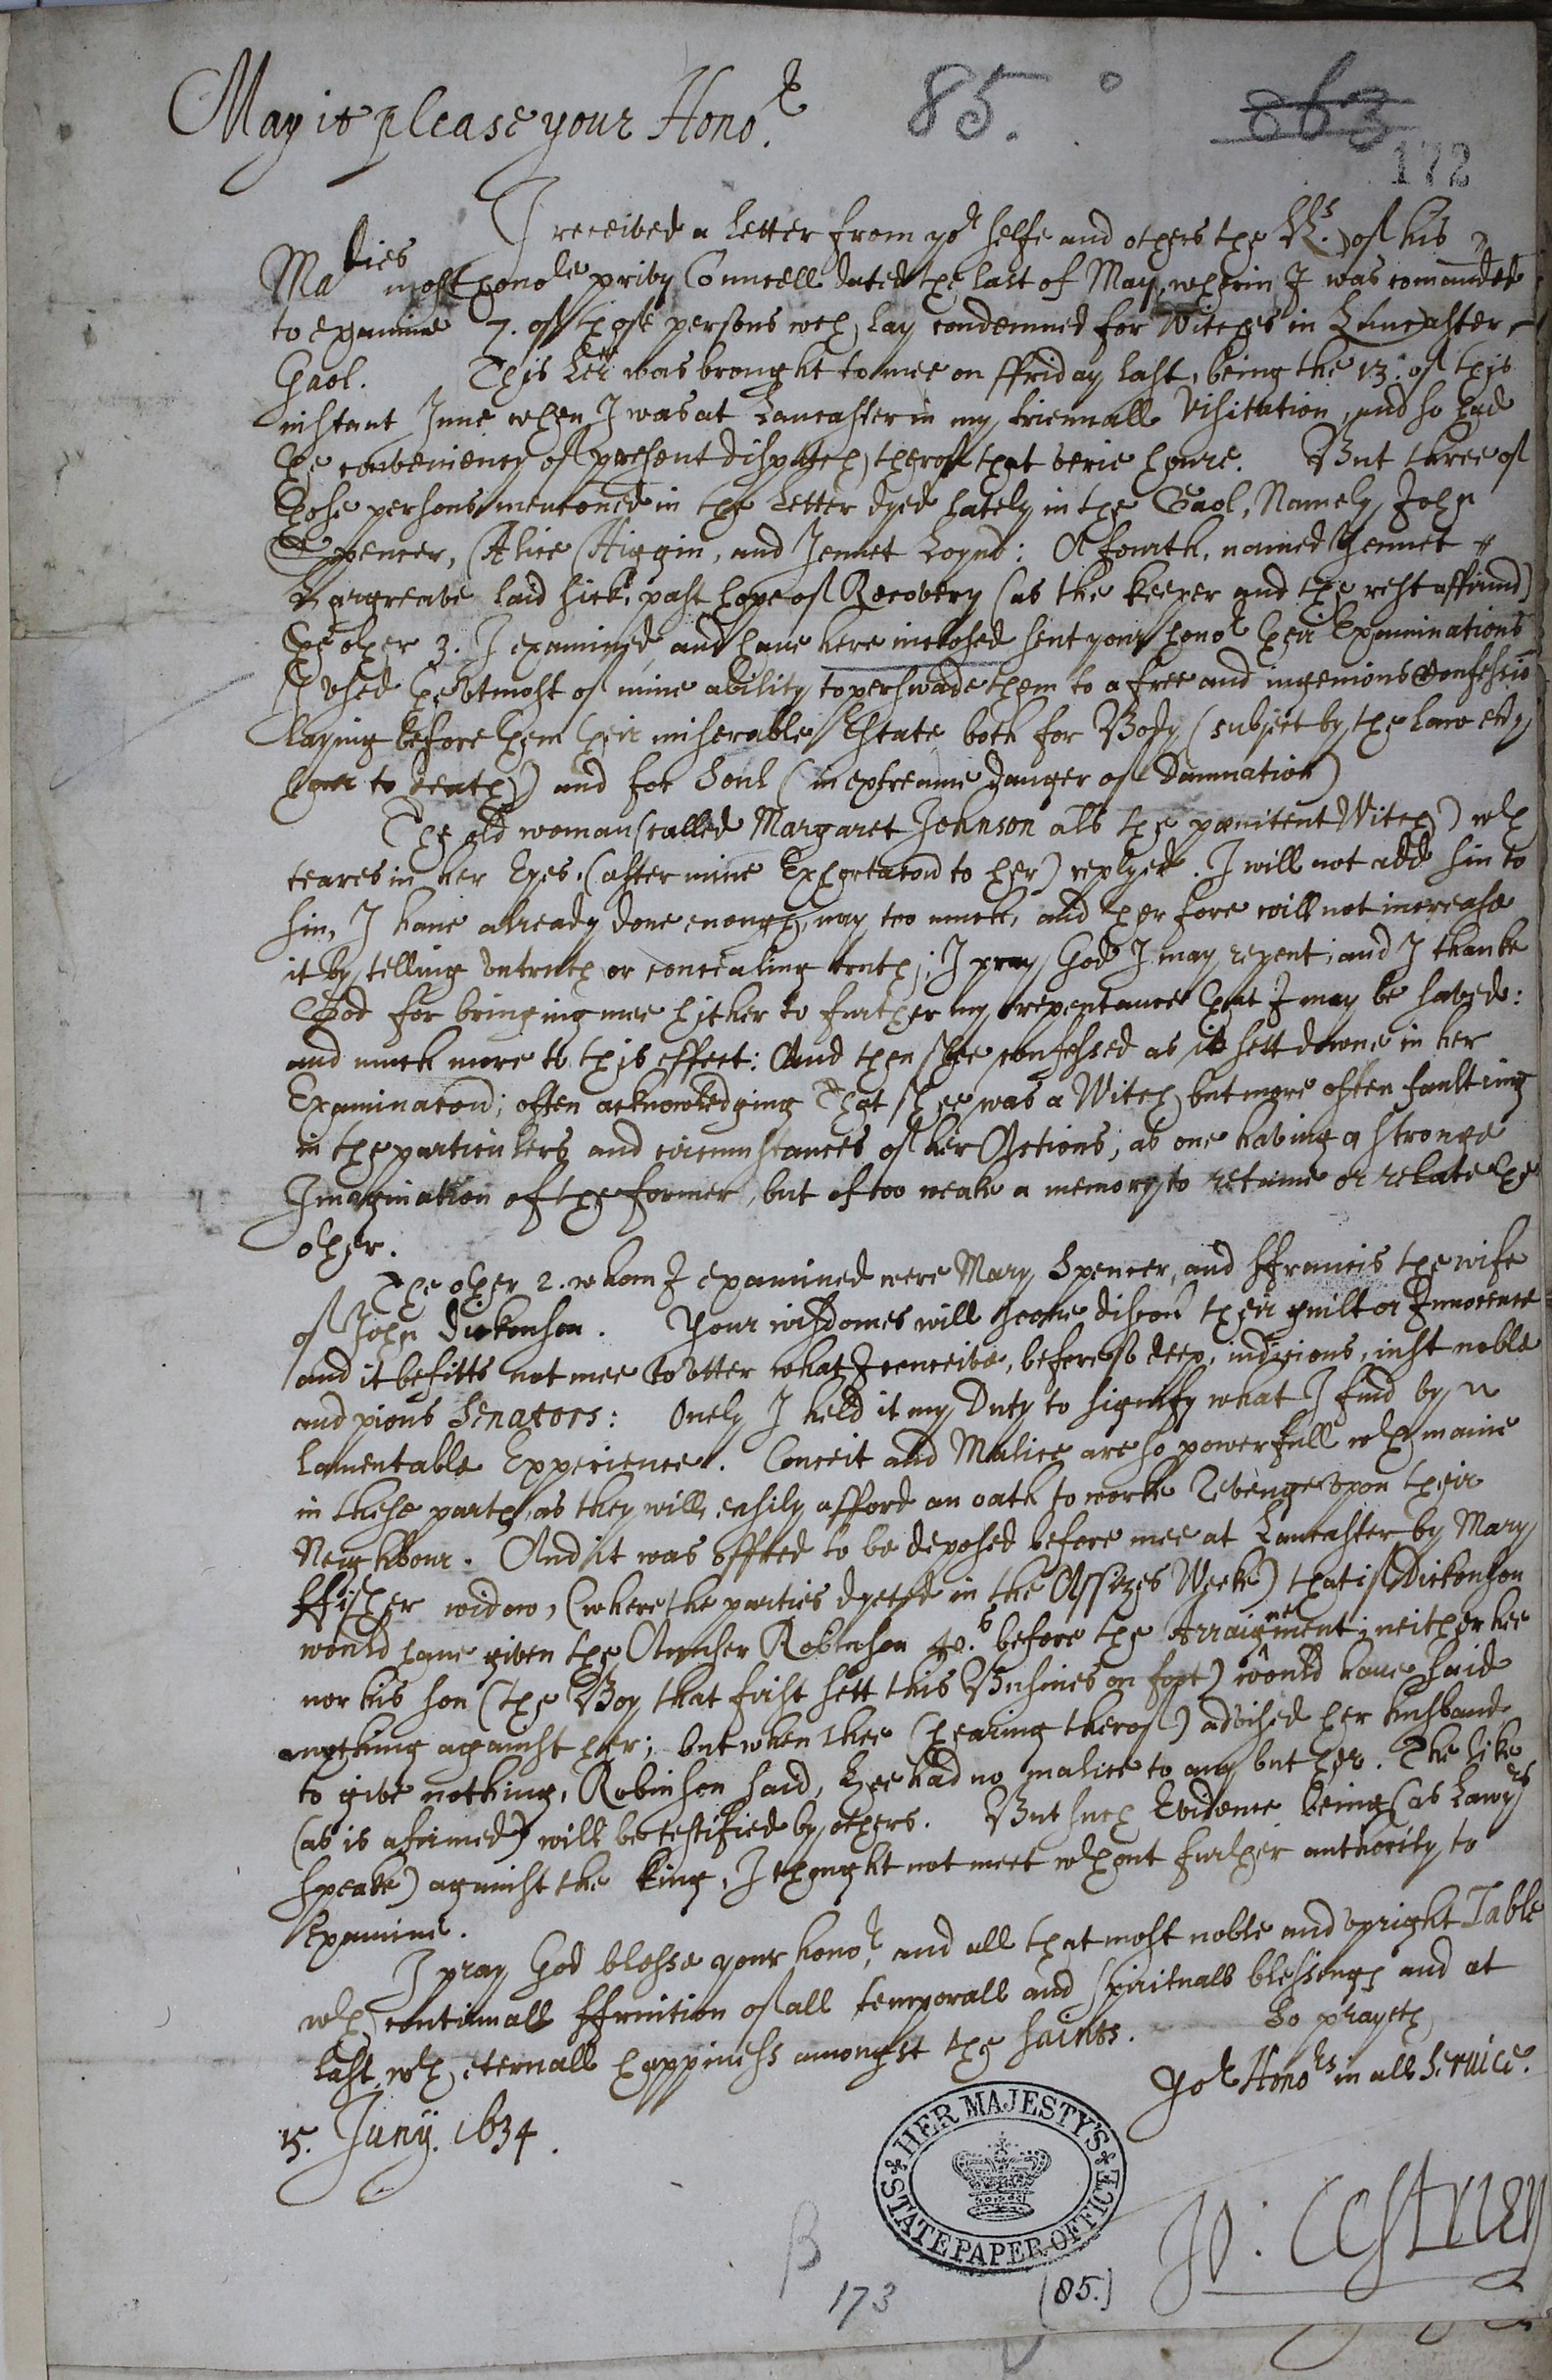 May it please your Honor.
85.
863
172
I received a letter from yor selfe and others the LLs. of his
Maties most honoble privy Councell dated the last of May, wherin I was comaunded
to examine 7. of those persons wch lay condemned for Witches in Lancaster
Gaol. This Letter was brought to mee on ffriday last, being the 13. of this
instant June when I was at Lancaster in my trienniall Visitation, and so had
the conveniency of present dispatch therof that verie houre. But three of
those persons mentioned in the Letter dyed lately in the Gaol, Namely, John
Spencer, Alice Higgin, and Jennet Loynd: A fourth, named Jennet
Hargreave laid sick, past hope of Recovery (as the keeper and the rest affirmd)
The other 3. I examined, and have here inclosed sent your honor their Examinations
I used the utmost of mine ability to perswade them to a free and ingenious Confessio
laying before them their miserable Estate both for Body (subject by the law
to death) and for Soul (in extreame danger of Damnation)
The old woman (called Margaret Johnson als the pœnitent Witch) wth
teares in her Eyes, (after mine Exhortacon to her) replyed. I will not add sin to
sin, I haue already done enough, nay too much, and therfore will not increase
it by telling vntruth or concealing truth; I pray God I may repent; and I thanke
God for bringing mee hither to further my repentance that I may be saved:
and much more to this effect: And then shee confessed as is sett downe in her
Examinacon; often acknowledging That shee was a Witch, but more often faultring
in the particulers and circumstances of her Actions, as one having a stronge
Imagination of the former, but of too weake a memory to retaine or relate the
other.
The other 2. whom I examined were Mary Spencer, and ffrancis the wife
of John Dickonson. Your wisdomes will soone discour their guilt or Innocence
and it befitts not mee to vtter what I conceive, before so deep, iudicious, iust noble
and pious Senators: Onely I held it my Duty to signify what I find by
lamentable Experience. Conceit and Malice are so powerfull wth manie
in these partes, as they will easily afford an oath to worke Revenge vpon their
Neighbour. And it was offred to be deposed before mee at Lancaster by Mary
ffisher widow, (where the parties dyeted in the Assizes Weeke) that if Dickonson
would haue given the Accuser Robinson 40.s before the Arraignment, neither hee
nor his son (the Boy that first sett this Busines on foot) would haue said
anything against her; but when shee (hearing therof) advised her husband
to give nothing, Robinson said, hee had no malice to any but her. The like
(as is afirmed) will be testified by others. But such Evidence being (as Lawyrs
speake) against the King, I thought not meet wthout further authority to
Examine.
I pray God blesse your honor, and all that most noble and vpright Table
wth continuall ffruition of all temporall and spirituall blessings and at
last wth eternall happiness amongst the saints. So prayeth
Yor Honors in all Service.
15. Junij. 1634.
HER MAJESTY'S
STATE PAPER OFFICE
Jo: Cestrien
B
173
(85.)